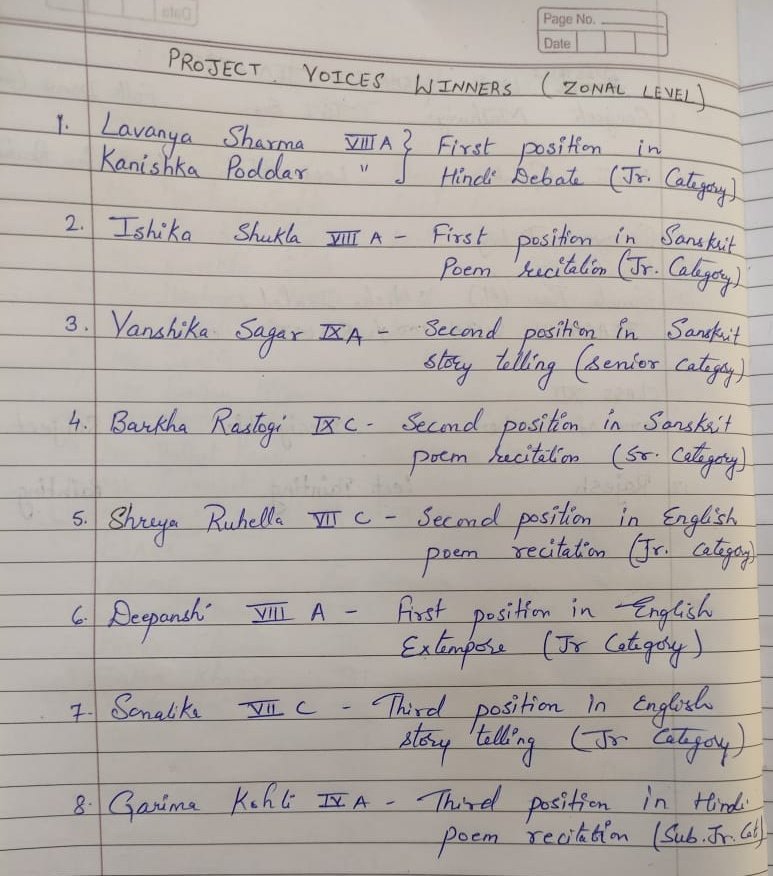 Page No.
Date
PROJECT VOICES WINNERS (ZONAL LEVEL)
1. Lavanya Sharma VIII A } First position in
Kanishka Poddar " Hindi Debate (Jr. Category)
2. Ishika Shukla VIII A - First position in Sanskrit
Poem recitation (Jr. Category)
3. Vanshika Sagar IX A - Second position in Sanskrit
story telling (senior category)
4. Barkha Rastogi IX C - Second position in Sanskrit
poem recitation (Sr. Category)
5. Shreya Ruhella VII C - Second position in English
poem recitation (Jr. Category)
6. Deepanshi VIII A - First position in English
Extempore (Jr Category)
7. Sonalika VII C - Third position in English
story telling (Jr Category)
8. Garima Kohli IV A - Third position in Hindi
poem recitation (Sub. Jr. Cat)